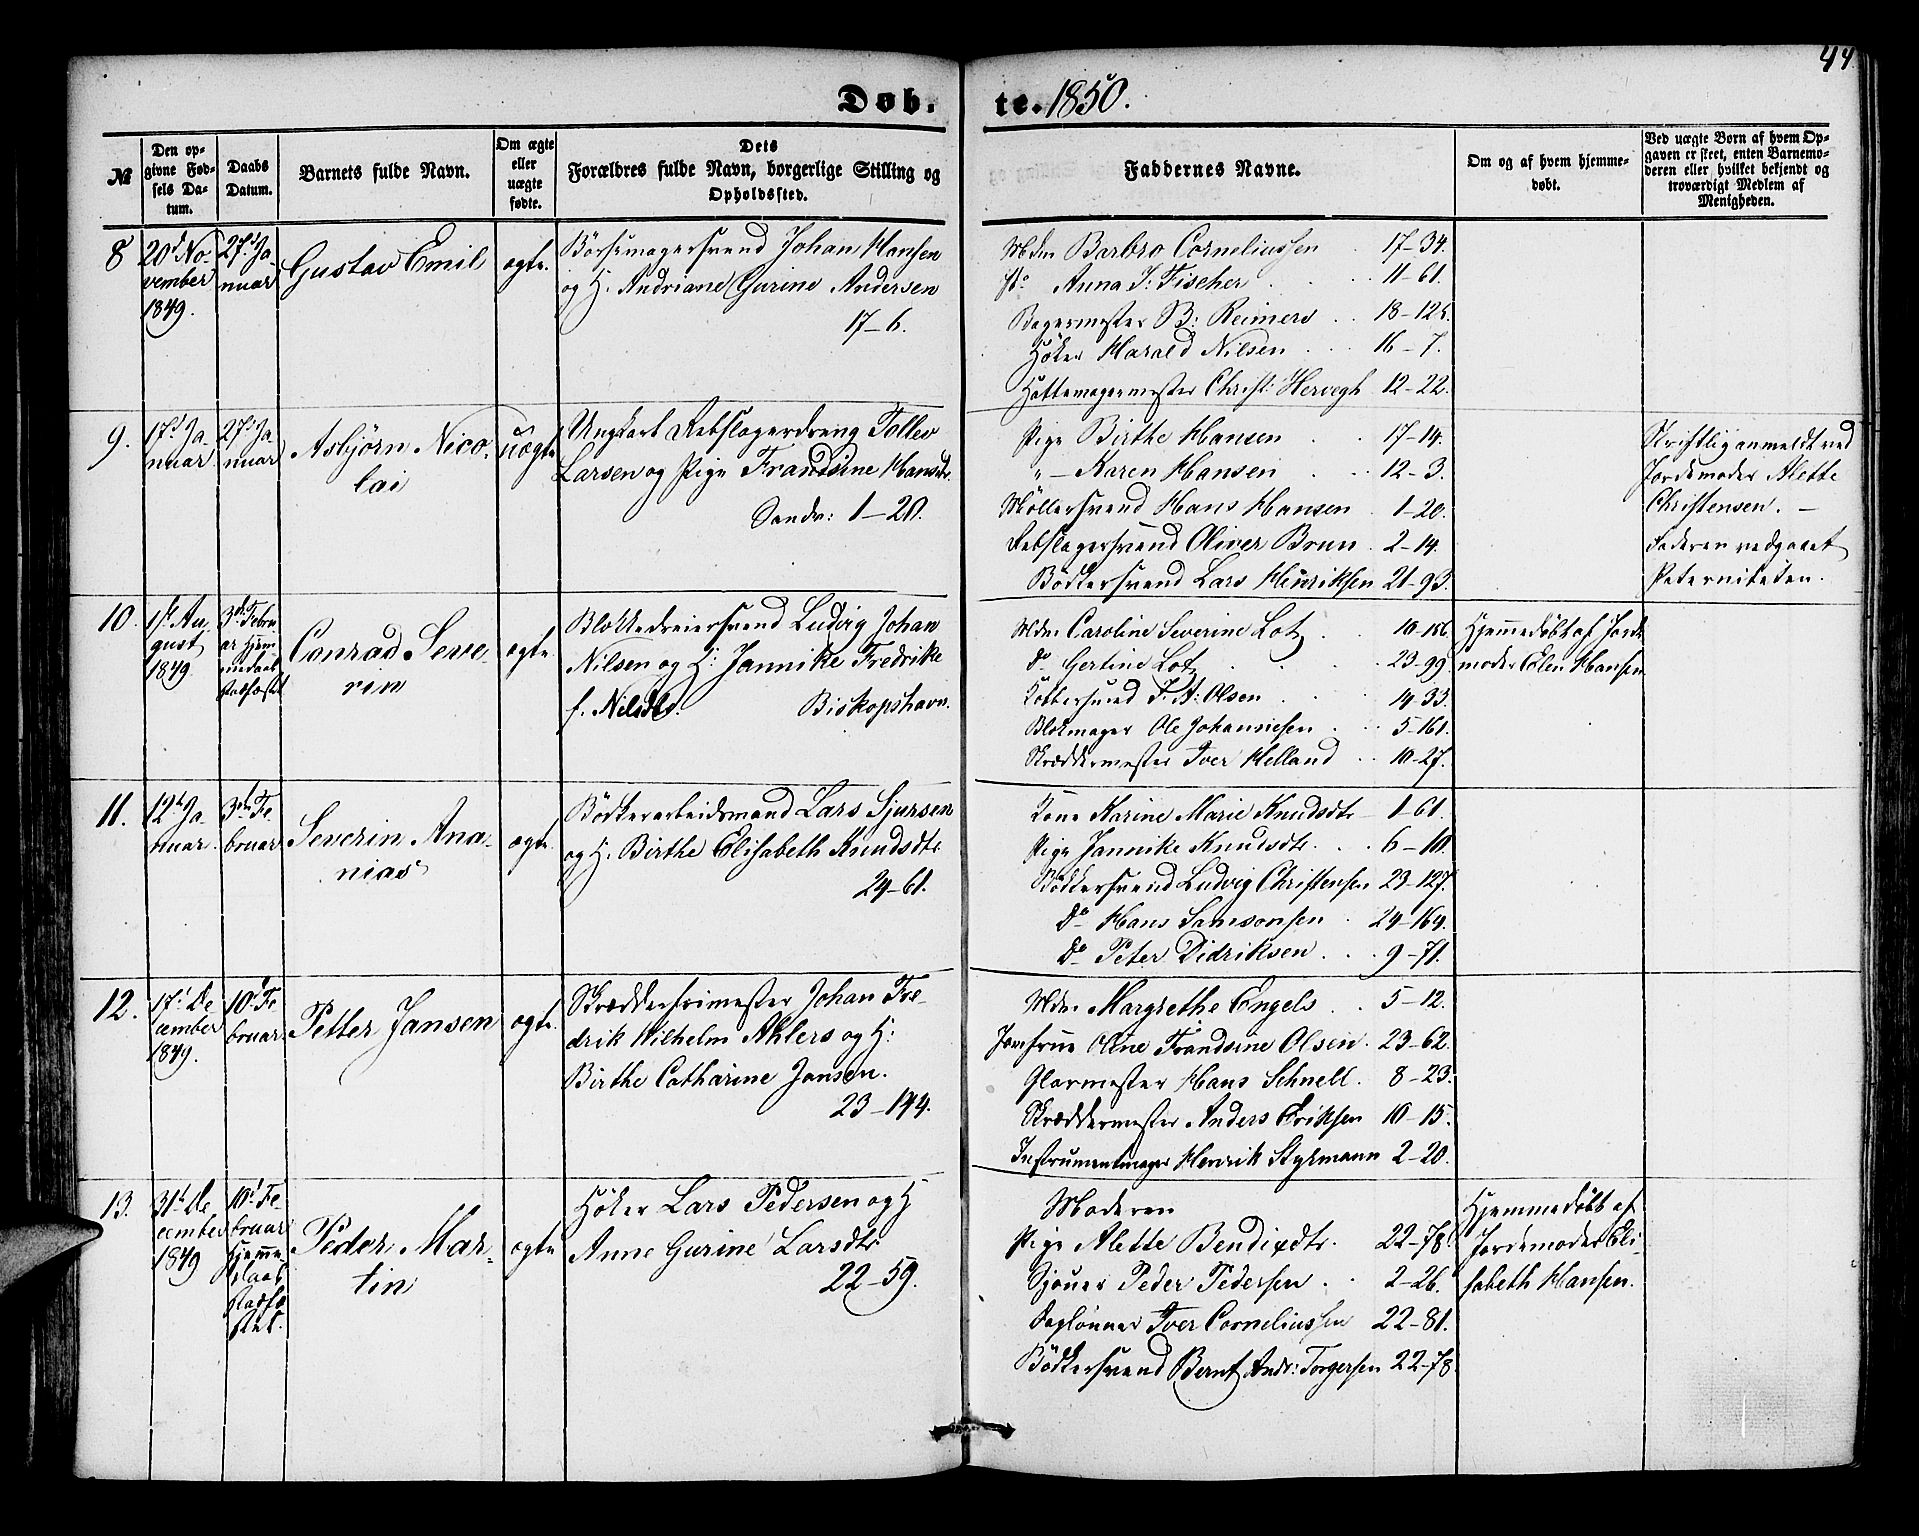 44
Døb. te. 1850.
№
Den opgivne Fødsels Datum.
Daabs Datum.
Barnets fulde Navn.
Om ægte eller uægte fødte.
Dets Forældres fulde Navn, borgerlige Stilling og Opholdssted.
Faddernes Navne.
Om og af hvem hjemmedøbt.
Ved uægte Børn af hvem Opgaven er skeet, enten Barnemoderen eller hvilket bekjendt og troværdigt Medlem af Menigheden.
8
20d No-
vember
1849.
27d Ja-
nuar
Gustav Emil
ægte.
Børsemagersvend Johan Hansen
og H. Andriane Gurine Andersen
17-6.
Mdm Barbro Corneliussen 17-34.
do Anna J: Fischer 11-61.
Bagermester B: Reimers 18-125.
Höker Harald Nilsen 16-7.
Hattemagermester Christ: Hervegh 12-22.
9.
17d Ja
nuar
27d Ja
nuar
Asbjörn Nico-
lai
uægte
Ungkarl Rebslagerdreng Tollev
Larsen og Pige Frandsine Hansdtr.
Sandv: 1-20.
Pige Birthe Hansen 17-14.
" - Karen Hansen 12-3.
Möllersvend Hans Hansen 1-20.
Rebslagersvend Oliver Brun 2-14.
Bödkersvend Lars Henriksen 21-93.
Skriftlig anmeldt ved
Jordemoder Alette
Christensen. -
Faderen vedgaaet
Paterniteten.
10.
1st Au
gust
1849
3d Febru
ar Hjem-
medaab
stadfæstet
Conrad Seve-
rin
ægte
Blokkedreiersvend Ludvig Johan
Nilsen og H: Jannike Fredrike
f. Nilsdtr. Biskopshavn.
Mdm Caroline Severine Lotz 10-156
do Gertine Lotz 23-99.
Kobbersmed J. A: Olsen 14-33.
Blokmager Ole Johannesen 5-161.
Skræddermester Iver Helland 10-27.
Hjemmedöbt af Jorde
moder Elen Hansen
11.
12t Ja
nuar.
3die Fe-
bruar
Severin Ana-
nias
ægte.
Bödkerarbeidsmand Lars Sjursen
og H. Birthe Elisabeth Knudsdtr
24-61.
Kone Karine Marie Knudsdtr 1-61.
Pige Jannike Knudsdtr 6-10.
Bödkersvend Ludvig Christensen 23-127.
Do Hans Samsonsen 24-164.
Do Peter Didriksen 9-71.
12.
17d De
cember
1849.
10d Fe
bruar.
Petter Jansen
ægte.
Skrædderfrimester Johan Fre-
drik Wilhelm Ahlers og H:
Birthe Catharine Jansen.
23-144.
Mdm Margrethe Engels 5-12.
Jomfrue Oline Frandsine Olsen. 23-62.
Glarmester Hans Schnell. 8-23.
Skræddermester Anders Eriksen 10-15.
Instrumentmager Henrik Styrmann 2-20.
13.
31d De
cember
1849
10d Fe-
bruar
Hjemme-
daab
stadfæ-
stet.
Peder Mar-
tin
ægte
Höker Lars Pedersen og H
Anne Gurine Larsdtr
22-59.
Moderen
Pige Alette Bendixdtr. 22-78.
Sjouer Peder Pedersen 2-26.
Daglönner Iver Corneliussen 22-81.
Bödkersvend Bernt Andr: Torgersen 22-78
Hjemmedöbt af
Jordemoder Eli-
sabeth Hansen.